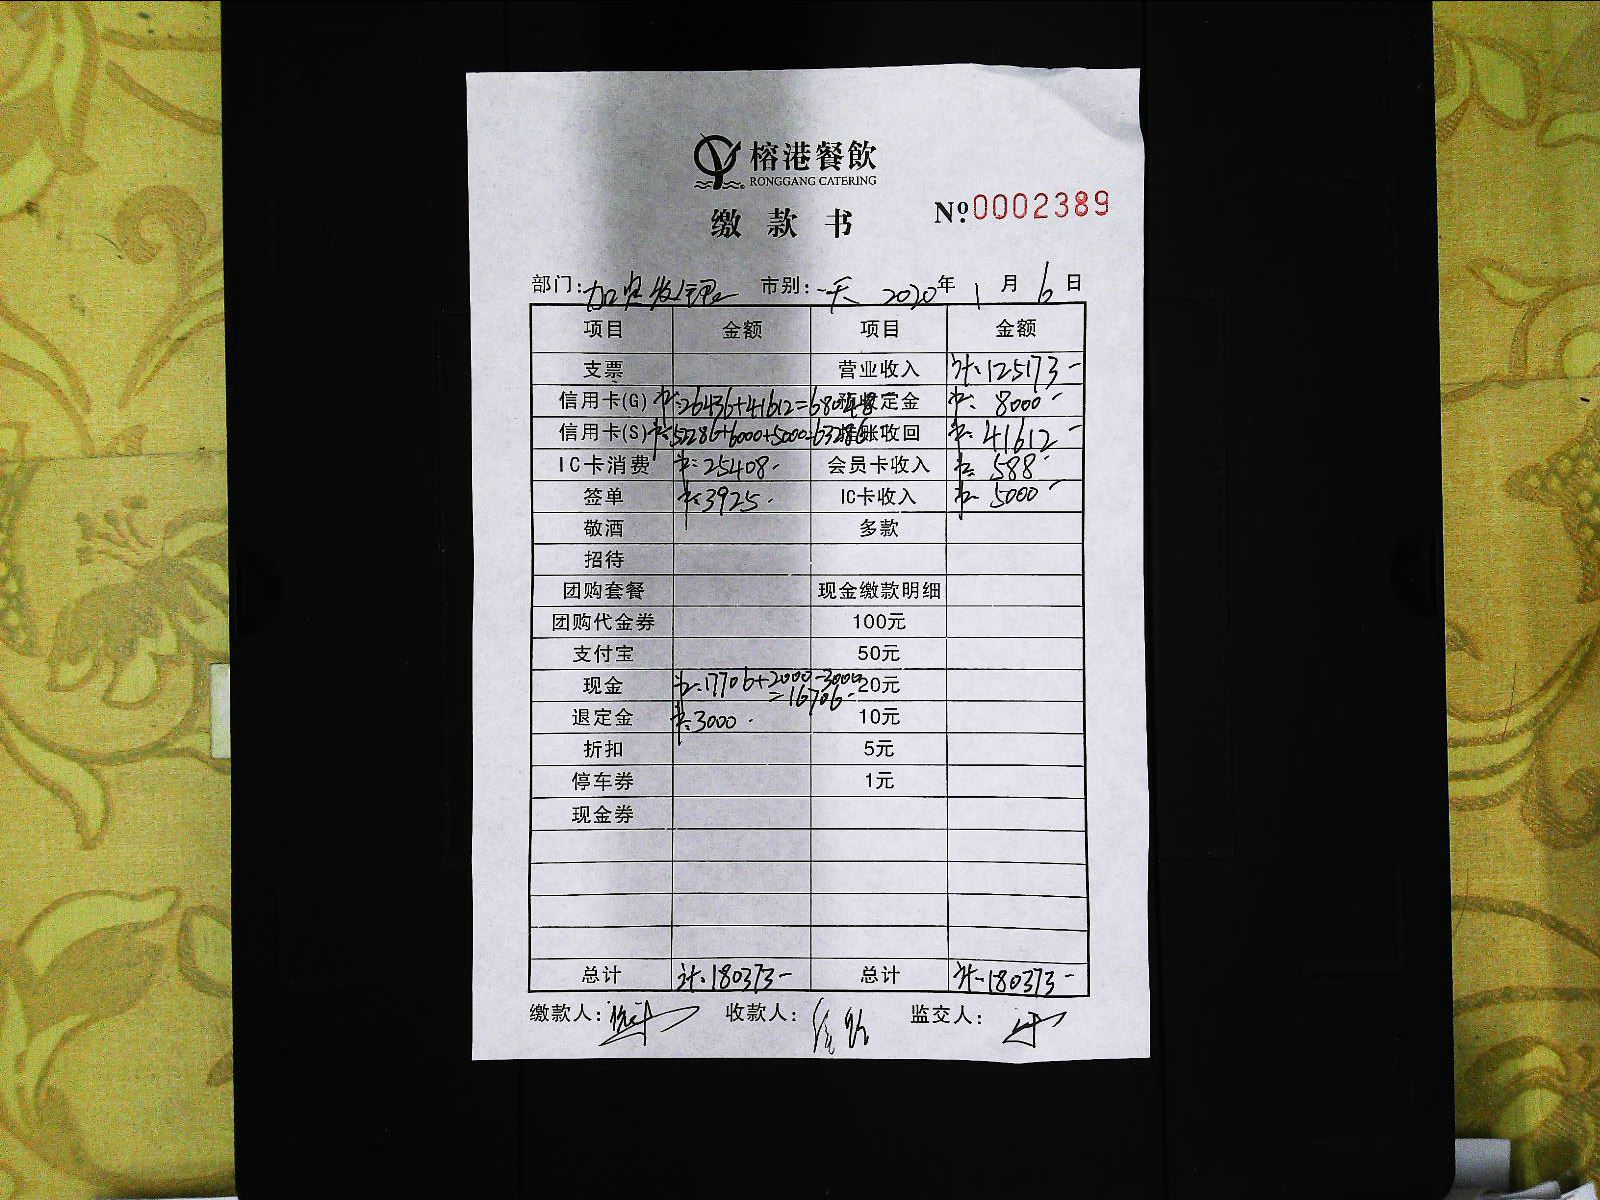 榕港餐飲
RONGGANG CATERING
缴款书
No.0002389
部门: 市别:一天 2020年1月6日
项目 金额 项目 金额
支票 营业收入 计:125173-
信用卡(G) 26436+41612=68048 预收定金 8000-
信用卡(S) 52286+6000+5000=63286 挂账收回 41612-
IC卡消费 25408- 会员卡收入 588-
签单 3925- IC卡收入 5000-
敬酒 多款
招待
团购套餐 现金缴款明细
团购代金券 100元
支付宝 50元
现金 17706+2000-3000 20元
=16706-
退定金 3000- 10元
折扣 5元
停车券 1元
现金券
总计 计:180373- 总计 计:180373-
缴款人: 收款人: 监交人: